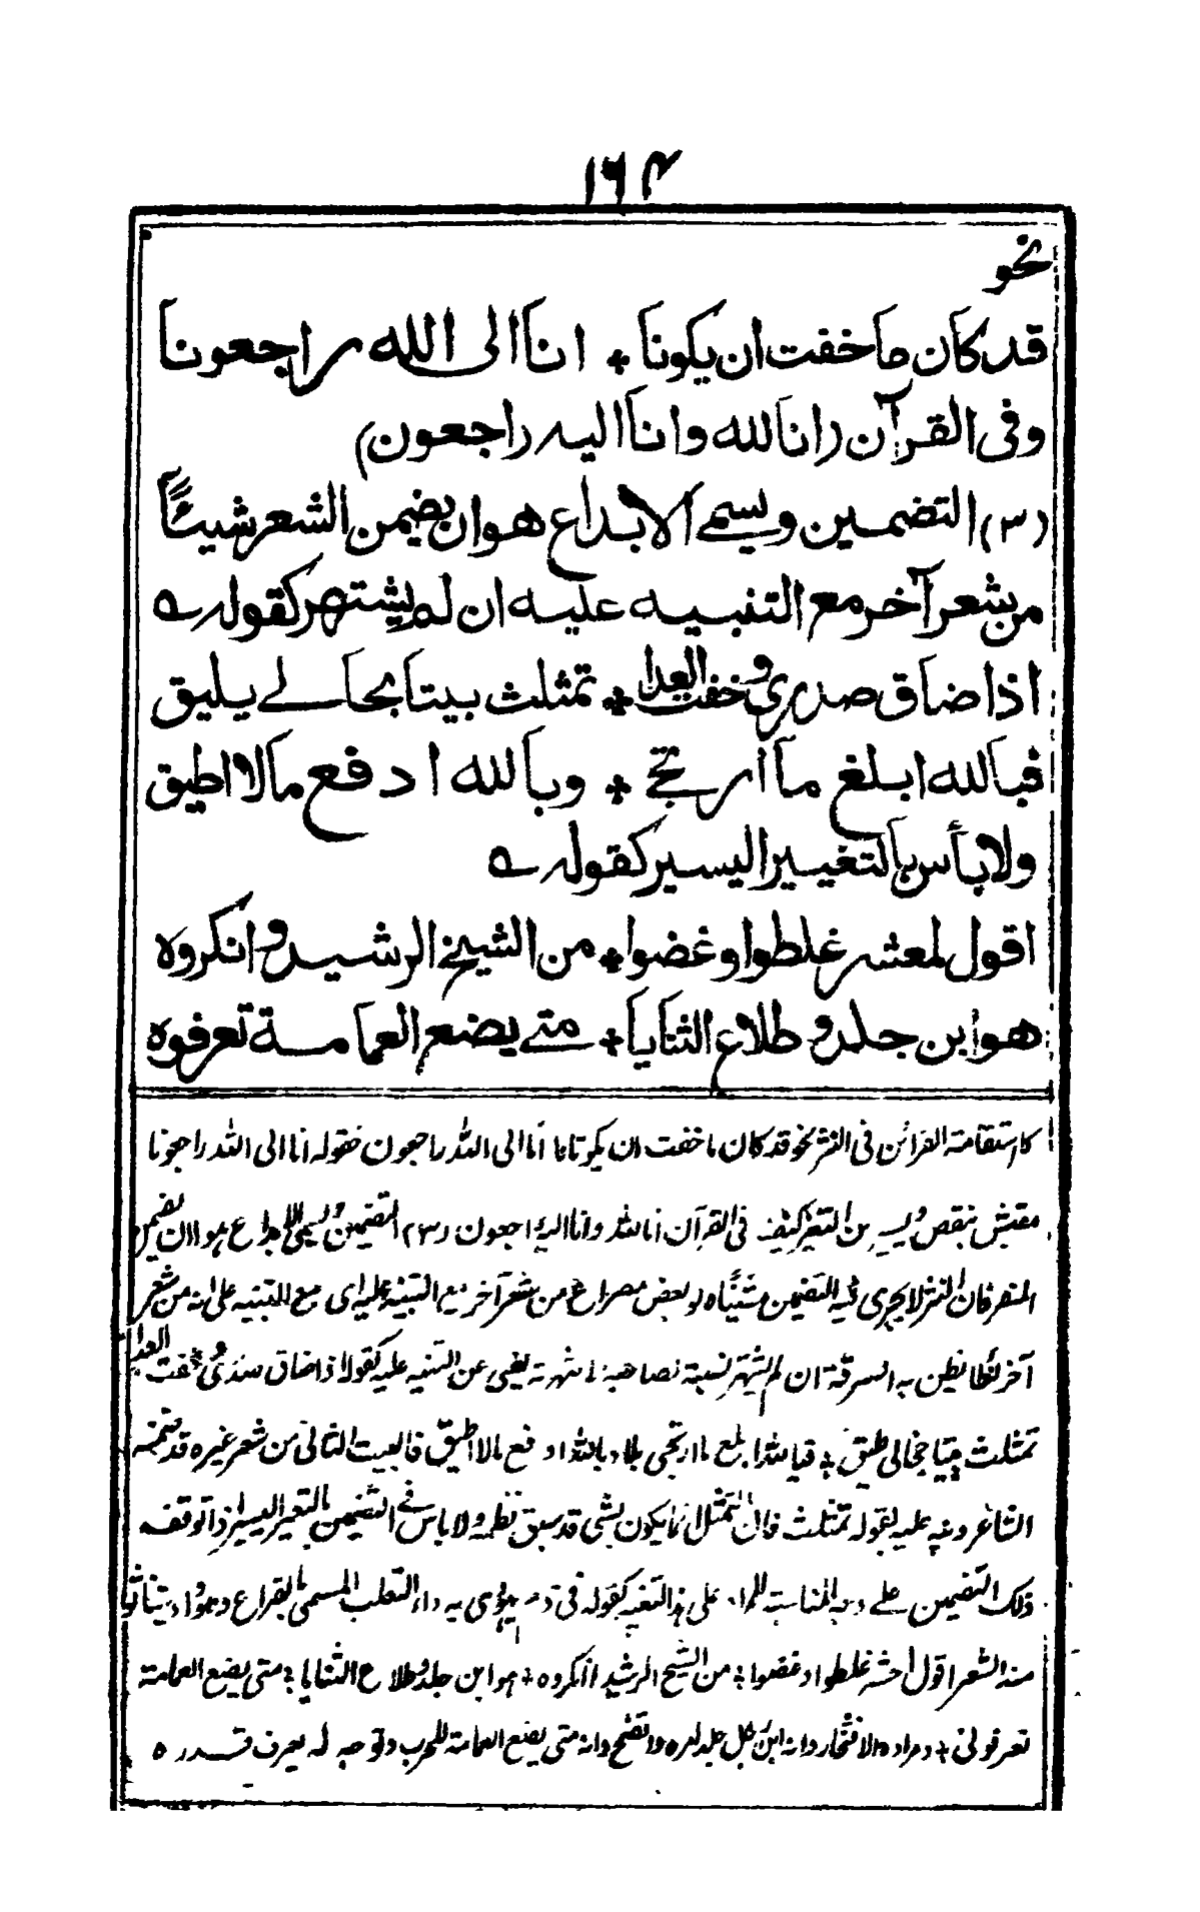 ۱۶۴
نحو
قد كان ما خفت ان يكونا + انا الى الله راجعونا
وفى القرآن (انا لله وانا اليه راجعون)
(٣) التضمين ويسمے الابداع هو ان يضمن الشعر شيئاً
من شعر آخر مع التنبيه عليه ان لم يشتهر كقوله ے
اذا ضاق صدرى وخفت العدا + تمثلت بيتا بحالے يليق
فبالله ابلغ ما أرتجے + وبالله ادفع مالا اطيق
ولا بأس بالتغيير اليسير كقوله ے
اقول لمعشر غلطوا وغضوا + من الشيخ الرشيد وانكروه
هو ابن جلا وطلاع الثنايا + متے يضع العمامة تعرفوه
كاستقامة القرائن فى النثر نحو قد كان ما خفت ان يكونا انا الى الله راجعون فقوله انا الى الله راجعونا
مقتبس بنقص فى القرآن انا لله وانا اليه راجعون (٣) التضمين ويسمى الابداع هو ان يضمن
فان النثر لا يجرى فيه التضمين شيئًا ولو بعض مصراع من شعر آخر مع التنبيه عليه اى مع التنبيه على انه من شعر
آخر لئلا يظن به السرقة ان لم يشتهر نسبته لصاحبه شهرته تغنى عن التنبيه عليه كقوله اذا ضاق صدرى وخفت العدا
تمثلت بيتا بحالى يليق + فبالله ابلغ ما ارتجى + وبالله ادفع مالا اطيق فالبيت الثانى من شعر غيره قد ضمنه
الشاعر ونبه عليه بقوله تمثلت فان التمثل انما يكون بشئ قد سبق نظمه ولا باس فى التضمين بالتغير اليسير اذا توقف
ذلك التضمين علے على هذا التغيير كقوله فى ذم يهودى به داء الثعلب المسمى بالقراع
من الشعر اقول لمعشر غلطوا وغضوا + من الشيخ الرشيد وانكروه + هو ابن جلا وطلاع الثنايا + متى يضع العمامة
تعرفونى + ومراده الافتخار وانه ابن رجل جلا امره واتضح وانه متى يضع العمامة للحرب وتوجه له يعرف قدره